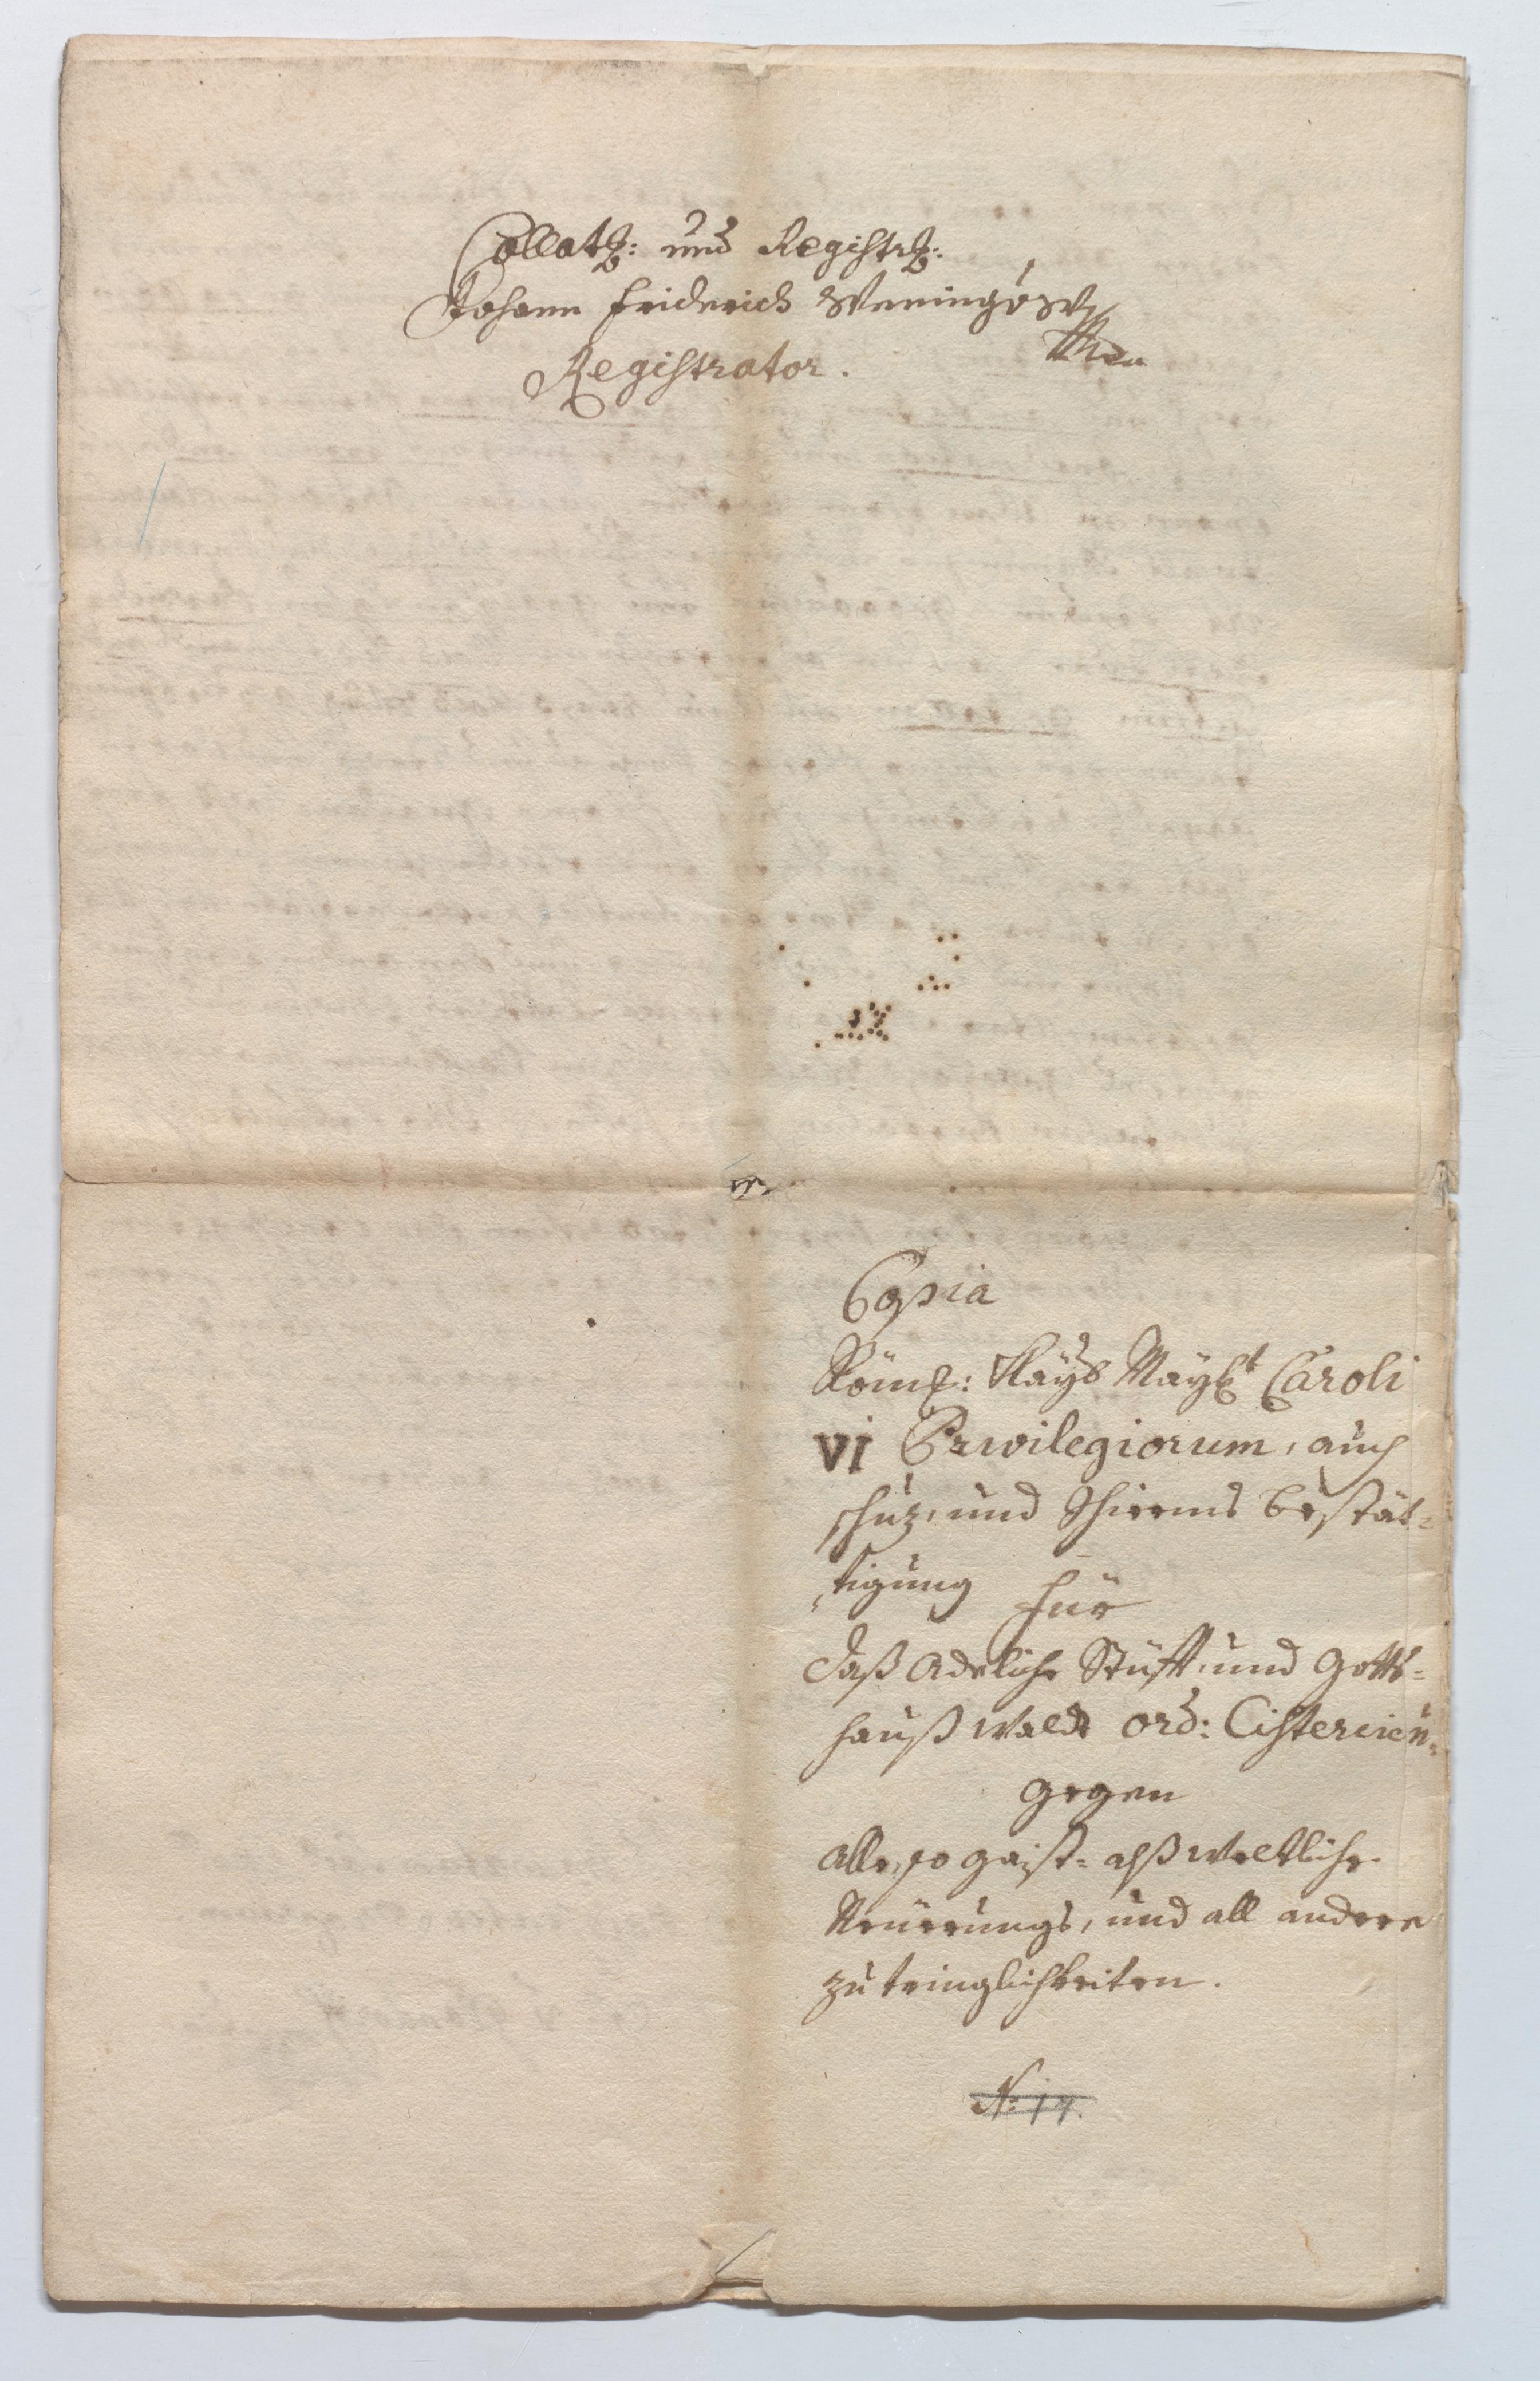 Collat: und Registr:
Johann Friderich
Registrator.
Copia
Röm: Kays Mayt Caroli
VI Privilegiorum, auch
schuz, und Schirms bestät-
tigung für
daß Adeliche Stüfft, und Gotts-
hauß Waldt ord: Cistercien-
gegen
alle, so gaist- alß weltliche
Neuerungs, und all andere
zutringlichkeiten.
N: 17.